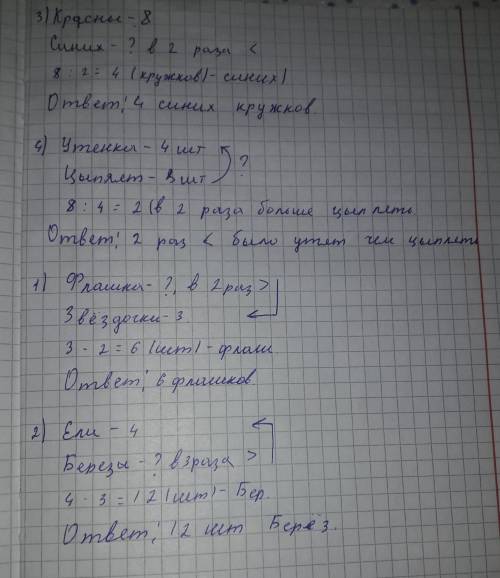 3) Красны - 8
Синих - ? в 2 раза <
8 : 2 = 4 (кружков) - синих)
Ответ: 4 синих кружков.
4) Утенки - 4 шт
Цыплят - 8 шт ?
8 : 4 = 2 (в 2 раза больше цыплять
Ответ: 2 раз < было утят чем цыплять
1) Флашки - ?, в 2 раз >
Звёздочки - 3.
3 · 2 = 6 (шт) - флаги
Ответ: 6 флашков.
2) Ели - 4
Березы - ? в 3 раза >
4 · 3 = 12 (шт) - Бер.
Ответ: 12 шт Берёз.